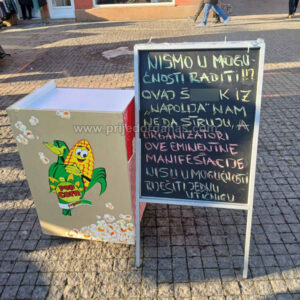 NISMO U MOGU-
ĆNOSTI RADITI!!?
OVAJ Š K IZ
„NAPOLIJA" NAM
NE DA STRUJU, A
ORGANIZATORI
OVE EMINENTNE
MANIFESTACIJE
NISU U MOGUĆNOSTI
RIJEŠITI JEDNU
UTIČNICU
www.prijedordanas.com
POP
CORN